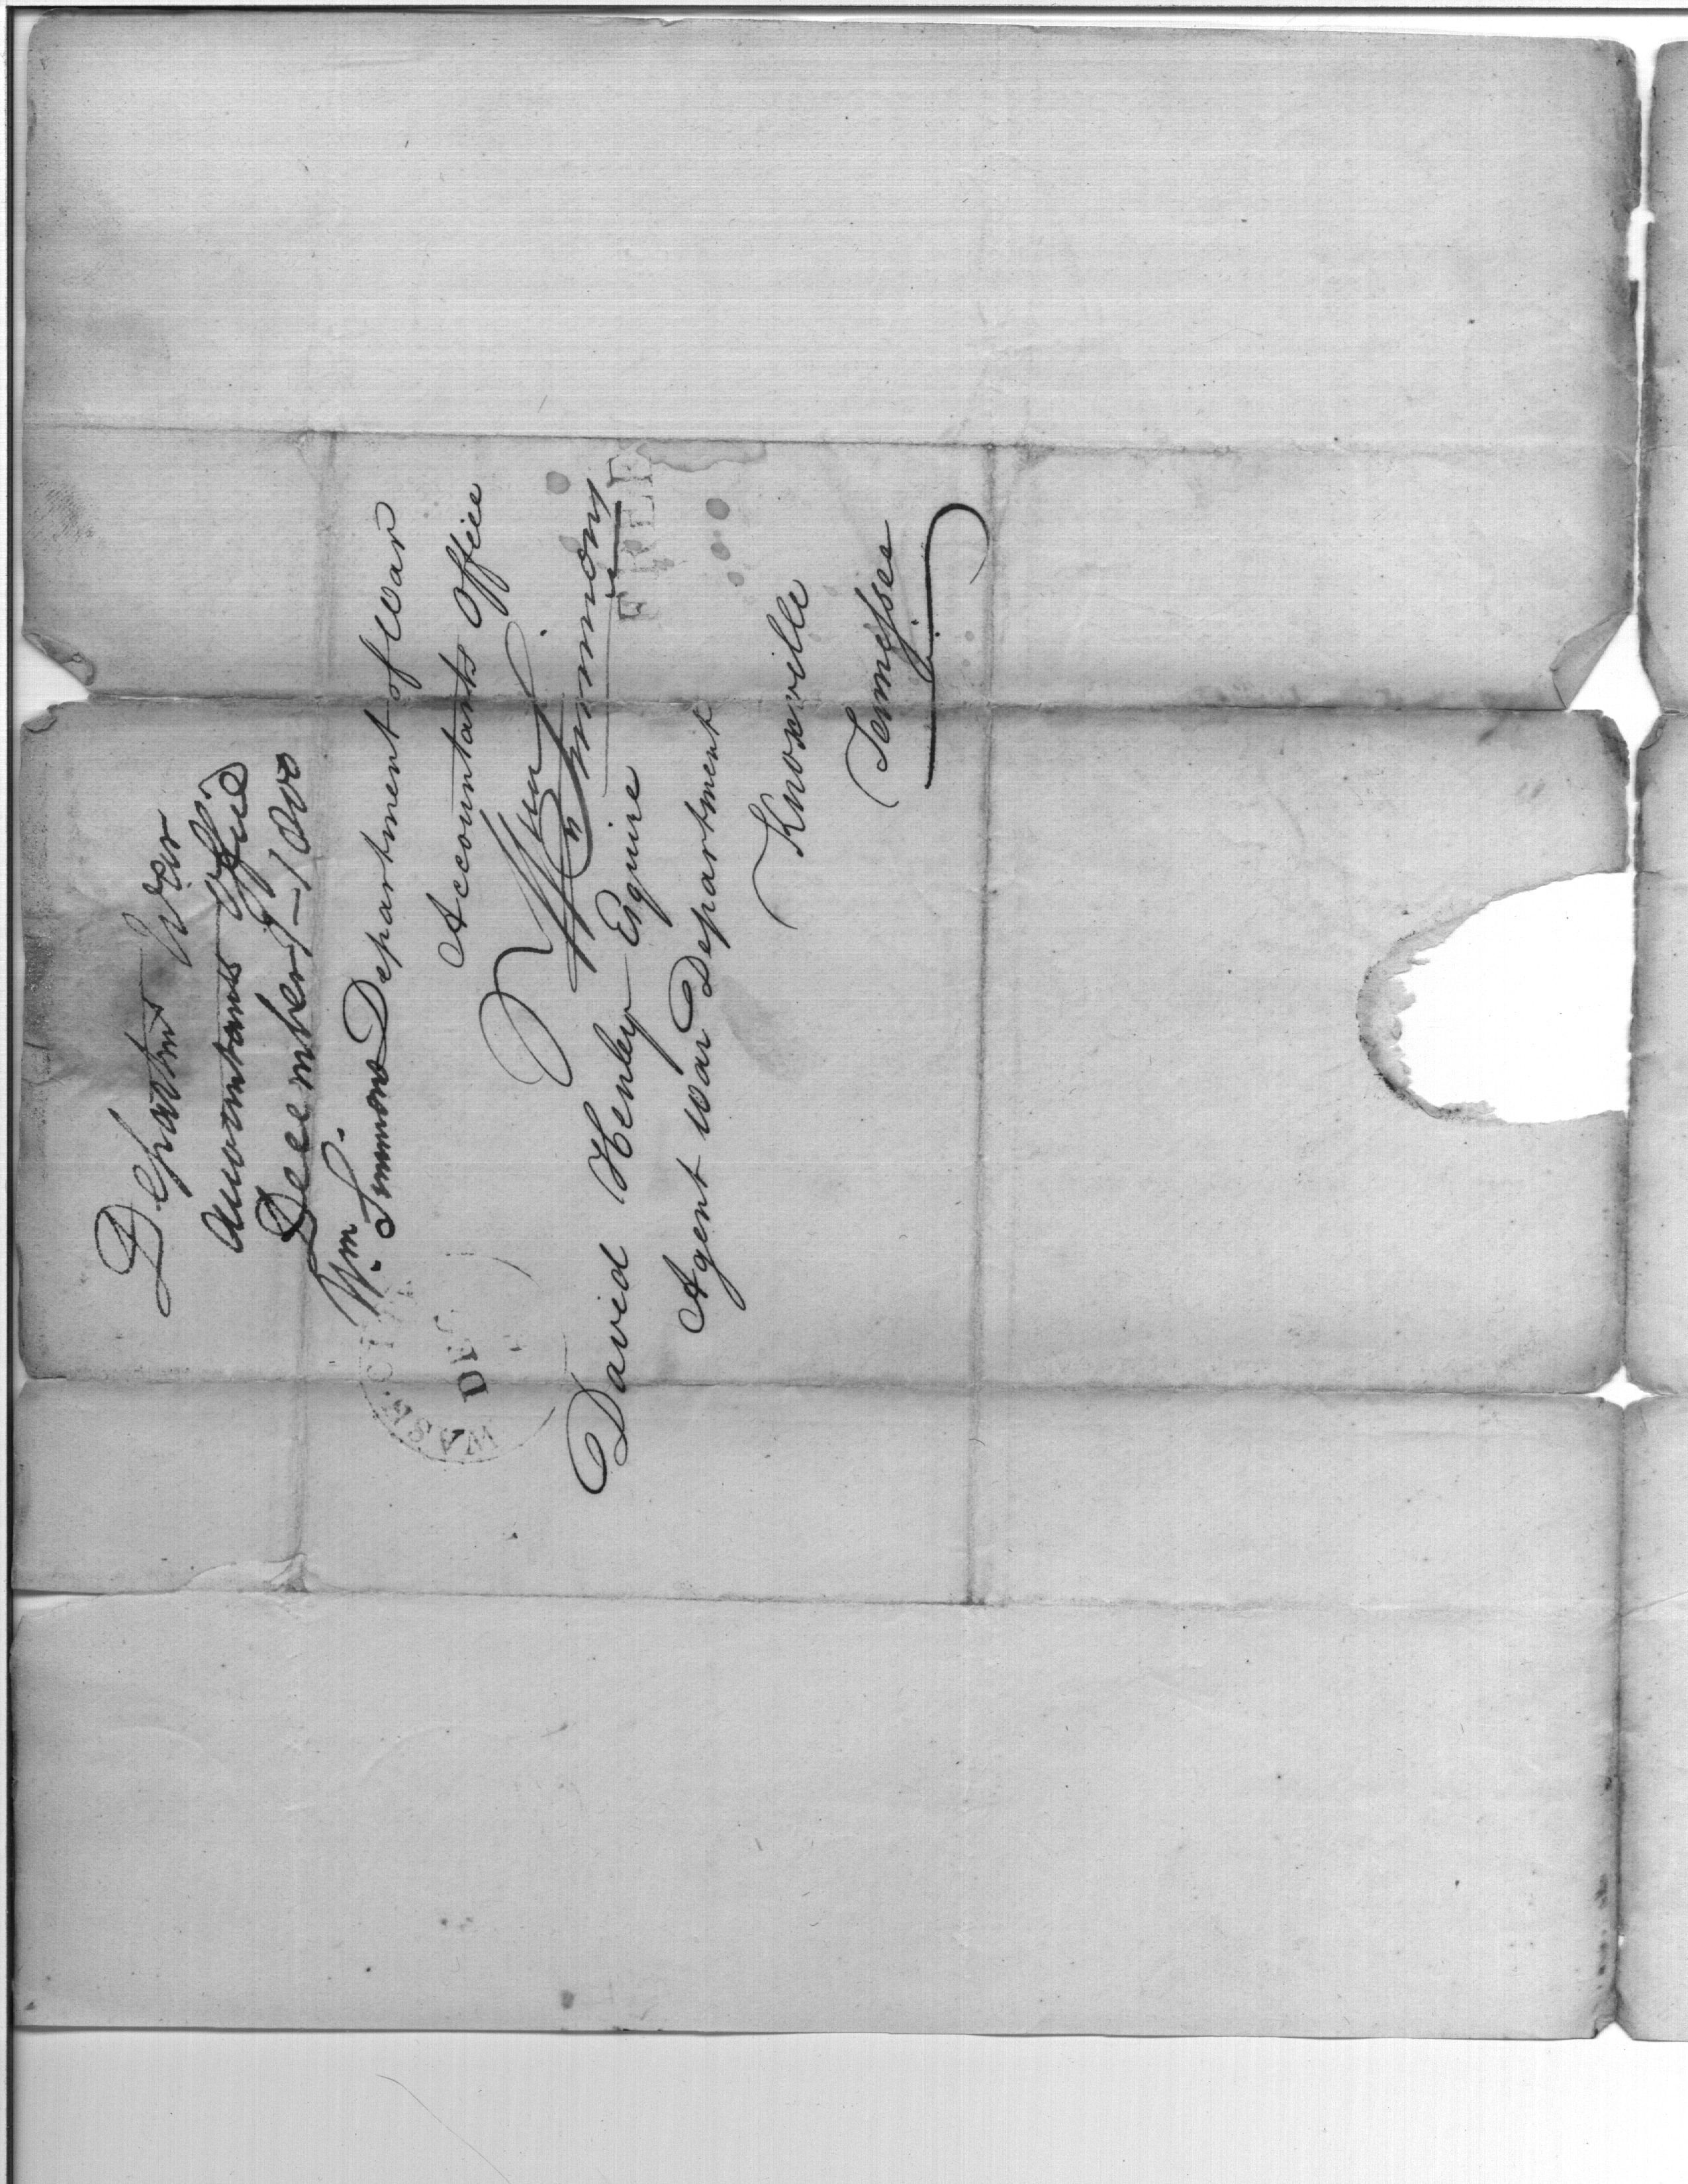 Departmt War
Accountants Office
December 9 – 1800
Wm. Simmons
Department of War
Accountants Office
Wm Simmons
FREE
WASH. CI
DEC
David Henley Esquire
Agent War Department
Knoxville
Tennessee